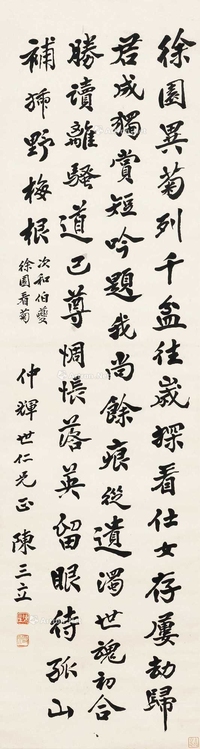 徐園異菊列千盆往歲探看仕女存屢劫歸
君成獨賞短吟題我尚餘痕從遺濁世魂初合
勝讀離騷道已尊惆悵落英留眼待孤山
補獅野梅根
次和伯夔
徐園看菊
仲輝世仁兄正
陳三立